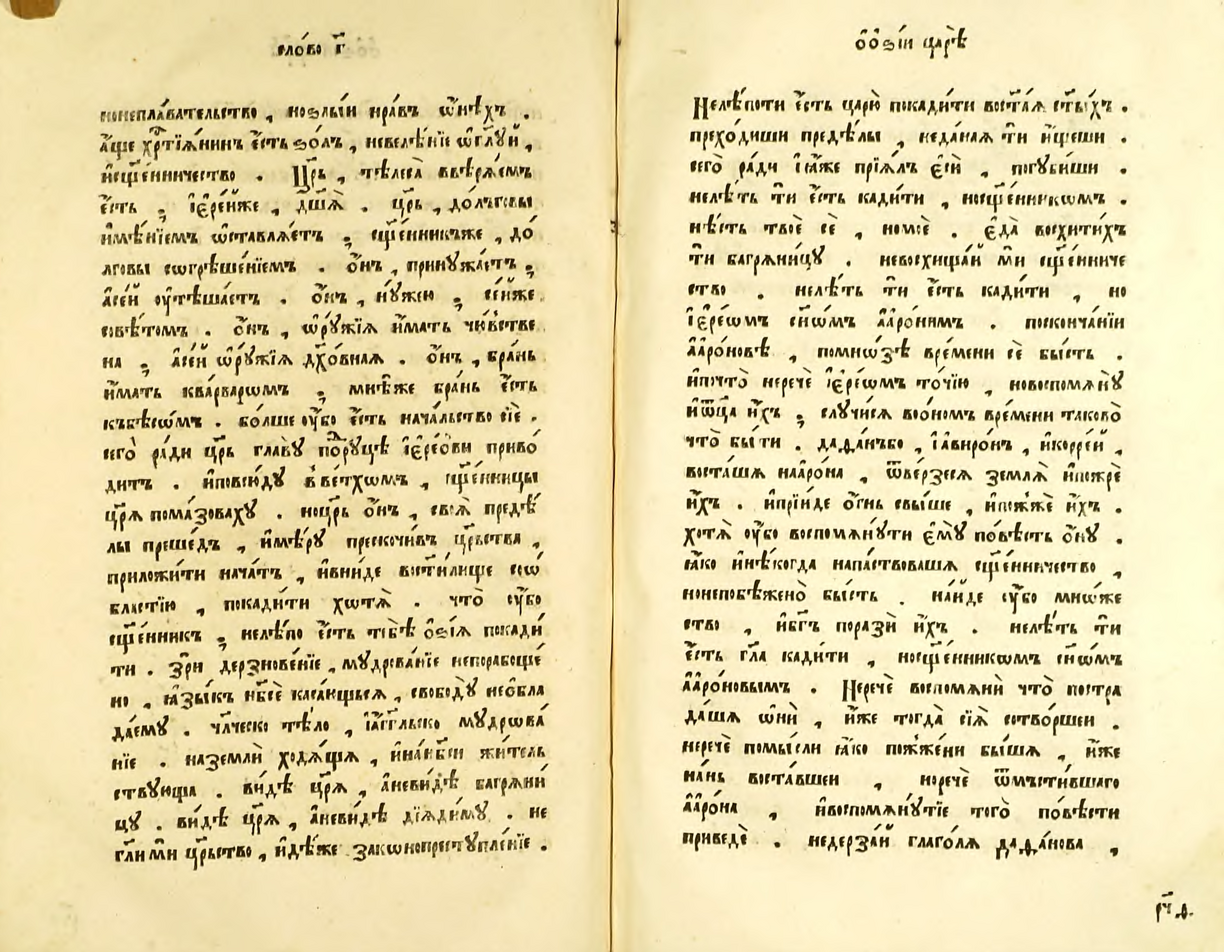 сло́во г҃
конепла́вательство , нозлы́и нра́въ ѡ҆нѣ́хъ .
а҆́ще хрⷭ҇тїѧ́нинъ є҆́сть зо́лъ , невелѣ́нїе ѡ҆глу́и ,
и҆сщ҃е́нничество . Цр҃ь , тѣлеса̀ ввѣрѧ́емъ
є҆́сть , і҆ере́йже , дш҃а̀ . цр҃ь , до́лъговы
и҆мѣ́нїемъ ѡ҆ставлѧ́етъ , сщ҃е́нникъже , до
лговы согрѣше́нїемъ . ѻ҆́нъ , прину́жаетъ ,
а҆се́й ᲂу҆тѣша́етъ . ѻ҆́нъ , ну́жею , се́йже
совѣ́томъ . ѻ҆́нъ , ѡ҆ру́жїѧ и҆́мать чю́встве
на , а҆се́й ѡ҆ру́жїѧ дх҃о́внаѧ . ѻ҆́нъ , бра́нь
и҆́мать ква́рварѡмъ , мнѣ́же бра́нь є҆́сть
къбѣсѡ́мъ . бо́лше ᲂу҆́бо є҆́сть нача́льство сїѐ .
сего̀ ра́ди цр҃ь главꙋ̀ по́рꙋцѣ і҆ере́ови приво́
дитъ . и҆повсю́дꙋ в ве́тхомъ , сщ҃е́нницы
цр҃ѧ̀ пома́зовахꙋ . ноцр҃ь ѻ҆́нъ , своѧ̀ предѣ́
лы преше́дъ , и҆мѣ́рꙋ прескочи́въ црⷭ҇тва ,
приложи́ти нача́тъ , и҆вни́де вст҃и́лище соѡ
бла́стїю , покади́ти хотѧ̀ . что̀ ᲂу҆́бо
сщ҃е́нникъ , нелѣ́по є҆́сть тебѣ̀ ѻ҆зі́ѧ покади́
ти . зрѝ дерзнове́нїе , мꙋдрова́нїе непорабоще́
но , ꙗ҆зы́къ нб҃сѐ каса́ющьсѧ , свобо́дꙋ неѡ҆бла
да́емꙋ . чл҃ческо тѣ́ло , і҆а҆́гг҃льско мꙋдрова́
нїе . наземлѝ ходѧ́щѧ , и҆на́нб҃си жи́тель
ствꙋюща . ви́дѣ цр҃ѧ̀ , а҆неви́дѣ багрѧни́
цꙋ . ви́дѣ цр҃ѧ̀ , а҆неви́дѣ дїѧди́мꙋ . не
гл҃и мѝ црⷭ҇тво , и҆дѣ́же законопрестꙋпле́нїе .
ѻ҆ѻ҆зі́и царѣ̀
Нелѣ́поти є҆́сть царю̀ покади́ти воста́ѧ ст҃ы́хъ .
прехо́диши предѣ́лы , неда́наѧ тѝ и҆́щеши .
сего̀ ра́ди і҆ꙗ҆́же прїѧ́лъ є҆сѝ , погꙋ́биши .
нелѣ́ть тѝ є҆́сть кади́ти , носщ҃е́нникѡмъ .
нѣ́сть твоѐ сѐ , номоѐ . є҆да̀ восхити́хъ
тѝ багрѧни́цꙋ . невосхища́й мѝ сщ҃е́нниче
ство . нелѣ́ть тѝ є҆́сть кади́ти , но
і҆ере́ѡмъ сн҃ѡ́мъ а҆арѡ́нимъ . поскончанїи
а҆арѡ́новѣ , помно́зѣ вре́мени сѐ бы́сть .
и҆почто̀ неречѐ і҆ере́ѡмъ то́чїю , новоспомѧнꙋ̀
и҆ѻ҆тца̀ и҆́хъ , слꙋчи́сѧ воѻ́номъ вре́мени таково̀
что̀ бы́ти . даѳа́нъбо , і҆авирѡ́нъ , и҆коррѐй ,
воста́шѧ наа҆ро́на , ѿве́рзесѧ землѧ̀ и҆пожрѐ
и҆́хъ . и҆прїи́де ѻ҆́гнь свы́ше , и҆пожжѐ и҆́хъ .
хотѧ̀ ᲂу҆́бо воспомѧнꙋ́ти є҆мꙋ̀ по́вѣсть ѻ҆́нꙋ .
ꙗ҆́ко и҆нѣ́когда напа́ствовашѧ сщ҃е́нничество ,
нонепобѣжено̀ бы́сть . на́иде ᲂу҆́бо мно́же
ство , и҆бг҃ъ поразѝ и҆́хъ . нелѣ́ть тѝ
є҆́сть гл҃ѧ кади́ти , носщ҃е́нникѡмъ сн҃ѡ́мъ
а҆арѡ́новымъ . Неречѐ воспомѧнѝ что̀ постра
да́шѧ ѻ҆нѝ , и҆́же тогда̀ сїѧ̀ сотво́ршеи .
неречѐ помы́сли ꙗ҆́ко пожже́ни бы́шѧ , и҆́же
на́нь воста́вшеи , норечѐ ѿмсти́вшаго
а҆арѡ́на , и҆воспомѧнꙋ́тїе того̀ по́вѣсти
приведѐ . недерза́й глаго́лѧ даѳа́нова ,
рч҃д.